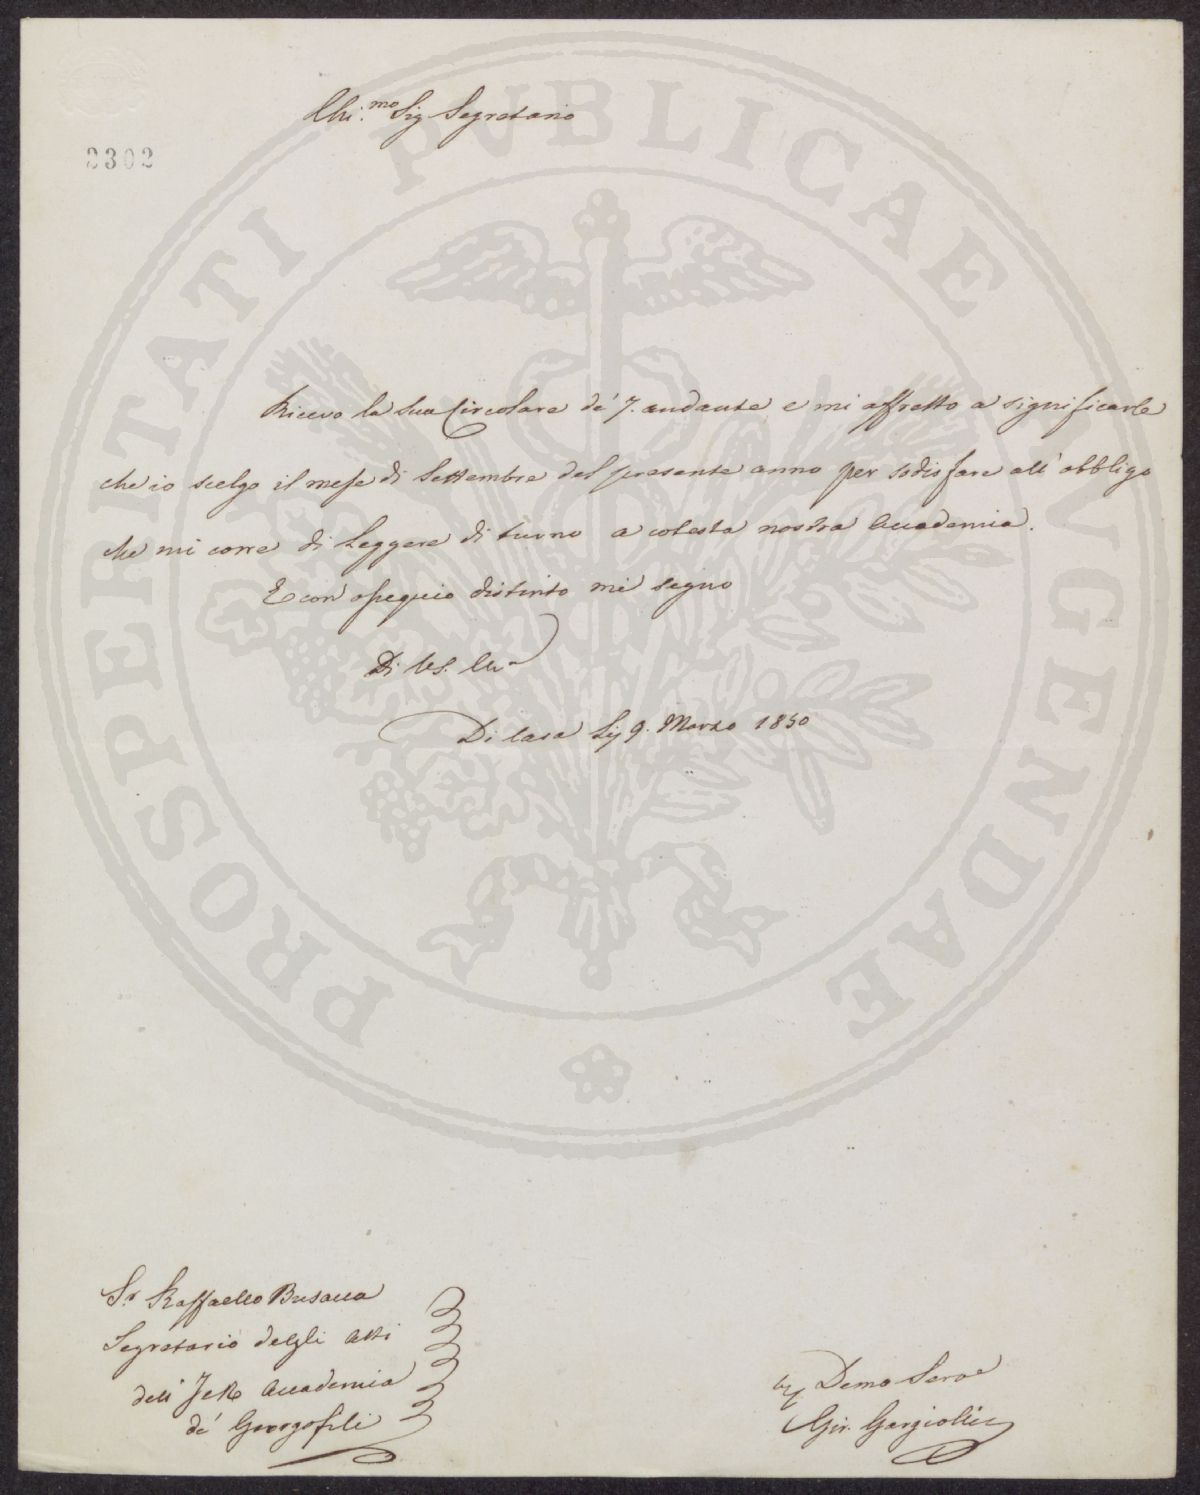 Chi.mo Sig Segretario
2302
Ricevo la sua Circolare de' 7. andante e mi affretto a significarle
che io scelgo il mese di Settembre del presente anno per sodisfare all'obbligo
che mi corre di Leggere di turno a cotesta nostra Accademia.
E con ossequio distinto mi segno
Di VS. Ill.a
Di Casa Li 9. Marzo 1850
Sr. Raffaello Busacca
Segretario delgli Atti
dell' I e R Accademia
de' Georgofili
Demo Servo
Gir. Gargiolli
PROSPERITATI PUBLICAE AUGENDAE